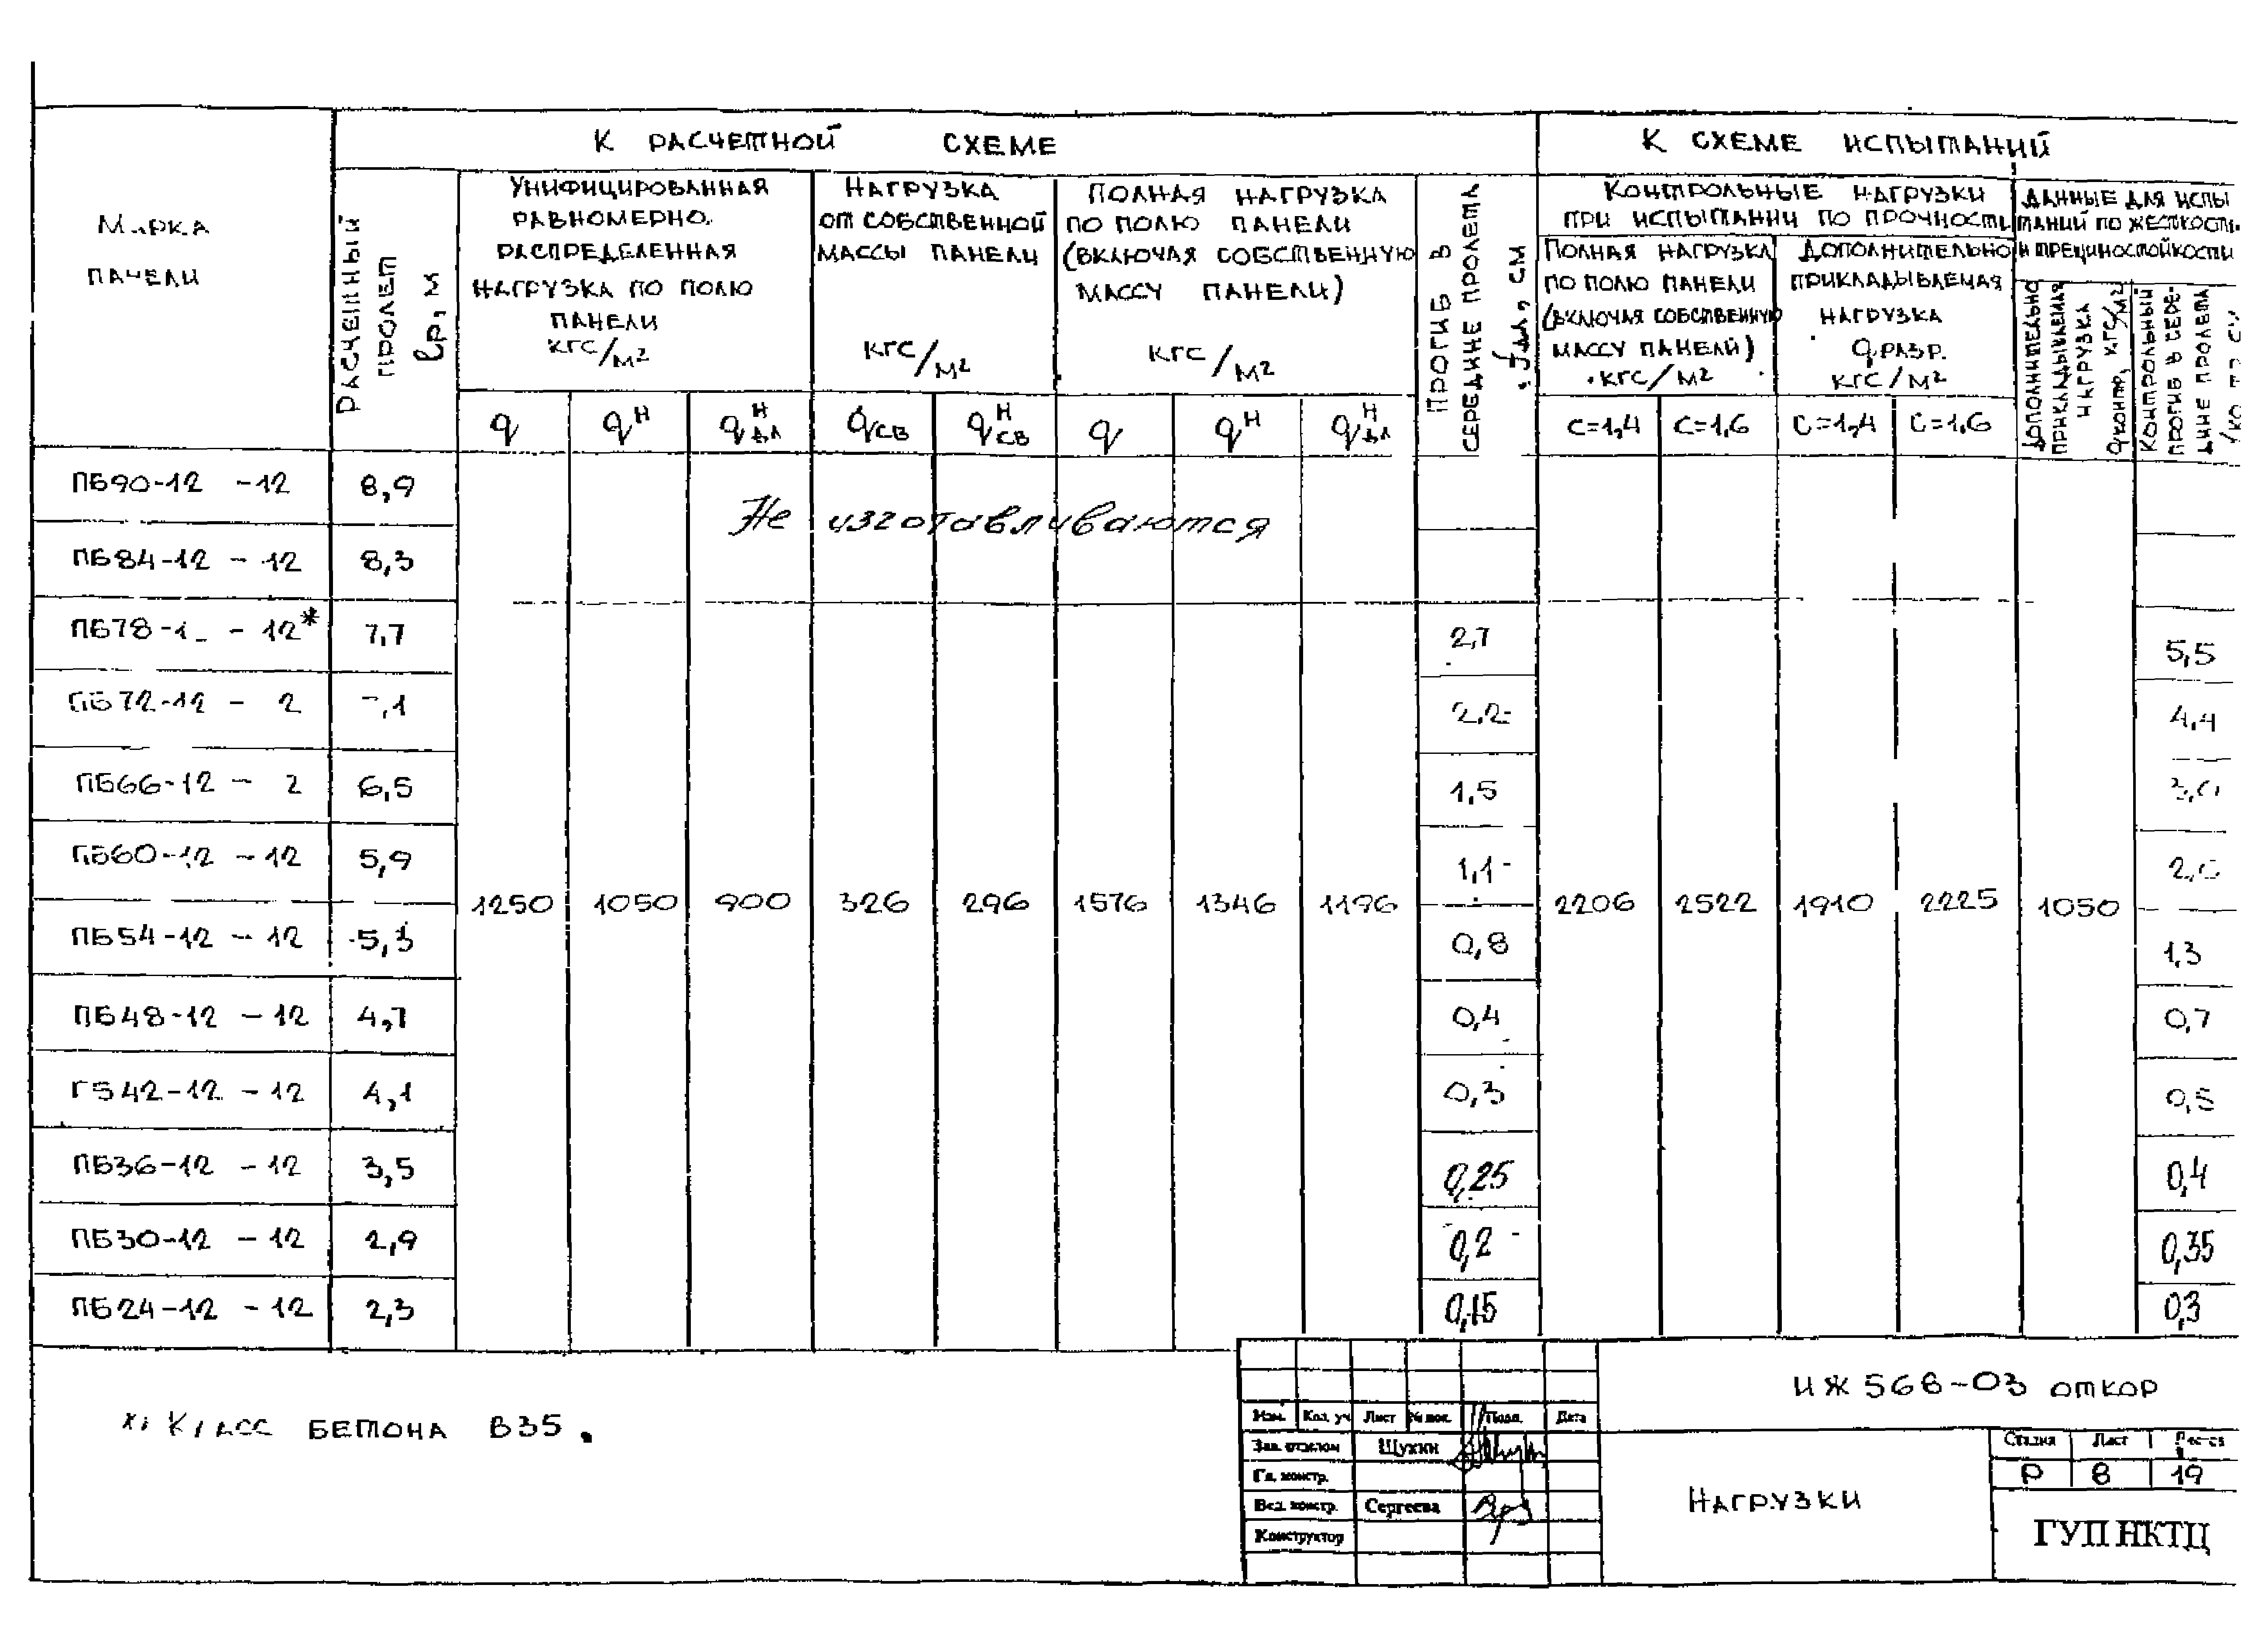 К РАСЧЕТНОЙ СХЕМЕ
К СХЕМЕ ИСПЫТАНИЙ
МАРКА
ПАНЕЛИ
РАСЧЕТНЫЙ
ПРОЛЕТ
ℓр, м
УНИФИЦИРОВАННАЯ
РАВНОМЕРНО.
РАСПРЕДЕЛЕННАЯ
НАГРУЗКА ПО ПОЛЮ
ПАНЕЛИ
КГС/М²
НАГРУЗКА
ОТ СОБСТВЕННОЙ
МАССЫ ПАНЕЛИ
КГС/М²
ПОЛНАЯ НАГРУЗКА
ПО ПОЛЮ ПАНЕЛИ
(ВКЛЮЧАЯ СОБСТВЕННУЮ
МАССУ ПАНЕЛИ)
КГС/М²
ПРОГИБ В
СЕРЕДИНЕ ПРОЛЕТА
fдл, СМ
КОНТРОЛЬНЫЕ НАГРУЗКИ
ПРИ ИСПЫТАНИИ ПО ПРОЧНОСТИ
ПОЛНАЯ НАГРУЗКА
ПО ПОЛЮ ПАНЕЛИ
(ВКЛЮЧАЯ СОБСТВЕННУЮ
МАССУ ПАНЕЛИ)
КГС/М²
ДОПОЛНИТЕЛЬНО
ПРИКЛАДЫВАЕМАЯ
НАГРУЗКА
qРАЗР.
КГС/М²
ДАННЫЕ ДЛЯ ИСПЫ
ТАНИЙ ПО ЖЕСТКОСТИ
И ТРЕЩИНОСТОЙКОСТИ
ДОПОЛНИТЕЛЬНО
ПРИКЛАДЫВАЕМАЯ
НАГРУЗКА
qконтр, КГС/М²
КОНТРОЛЬНЫЙ
ПРОГИБ В СЕРЕ-
ДИНЕ ПРОЛЕТА
q qᴴ qᴴдл qсв qᴴсв q qᴴ qᴴдл C=1,4 C=1,6 C=1,4 C=1,6
ПБ90-12 -12 8,9
Не изготавливаются
ПБ84-12 - 12 8,3
ПБ78-1 - 12* 7,7 2,7 5,5
ПБ72-12 - 2 ,1 2,2 4,4
ПБ66-12 - 2 6,5 1,5 3,0
ПБ60-12 - 12 5,9 1,1
1250 1050 900 326 296 1576 1346 1196 2206 2522 1910 2225 1050
ПБ54-12 - 12 5,3 0,8 1,3
ПБ48-12 - 12 4,7 0,4 0,7
ПБ42-12 - 12 4,1 0,3 0,5
ПБ36-12 - 12 3,5 0,25 0,4
ПБ30-12 - 12 2,9 0,2 0,35
ПБ24-12 - 12 2,3 0,15 0,3
*) КЛАСС БЕТОНА В35.
ИЖ 568-03 ОТКОР
Изм. Кол. уч Лист № док. Подп. Дата
Зав. отделом Щукин
Гл. констр.
Вед. констр. Сергеева
Конструктор
НАГРУЗКИ
Стадия Лист
Р 8 19
ГУП НКТЦ